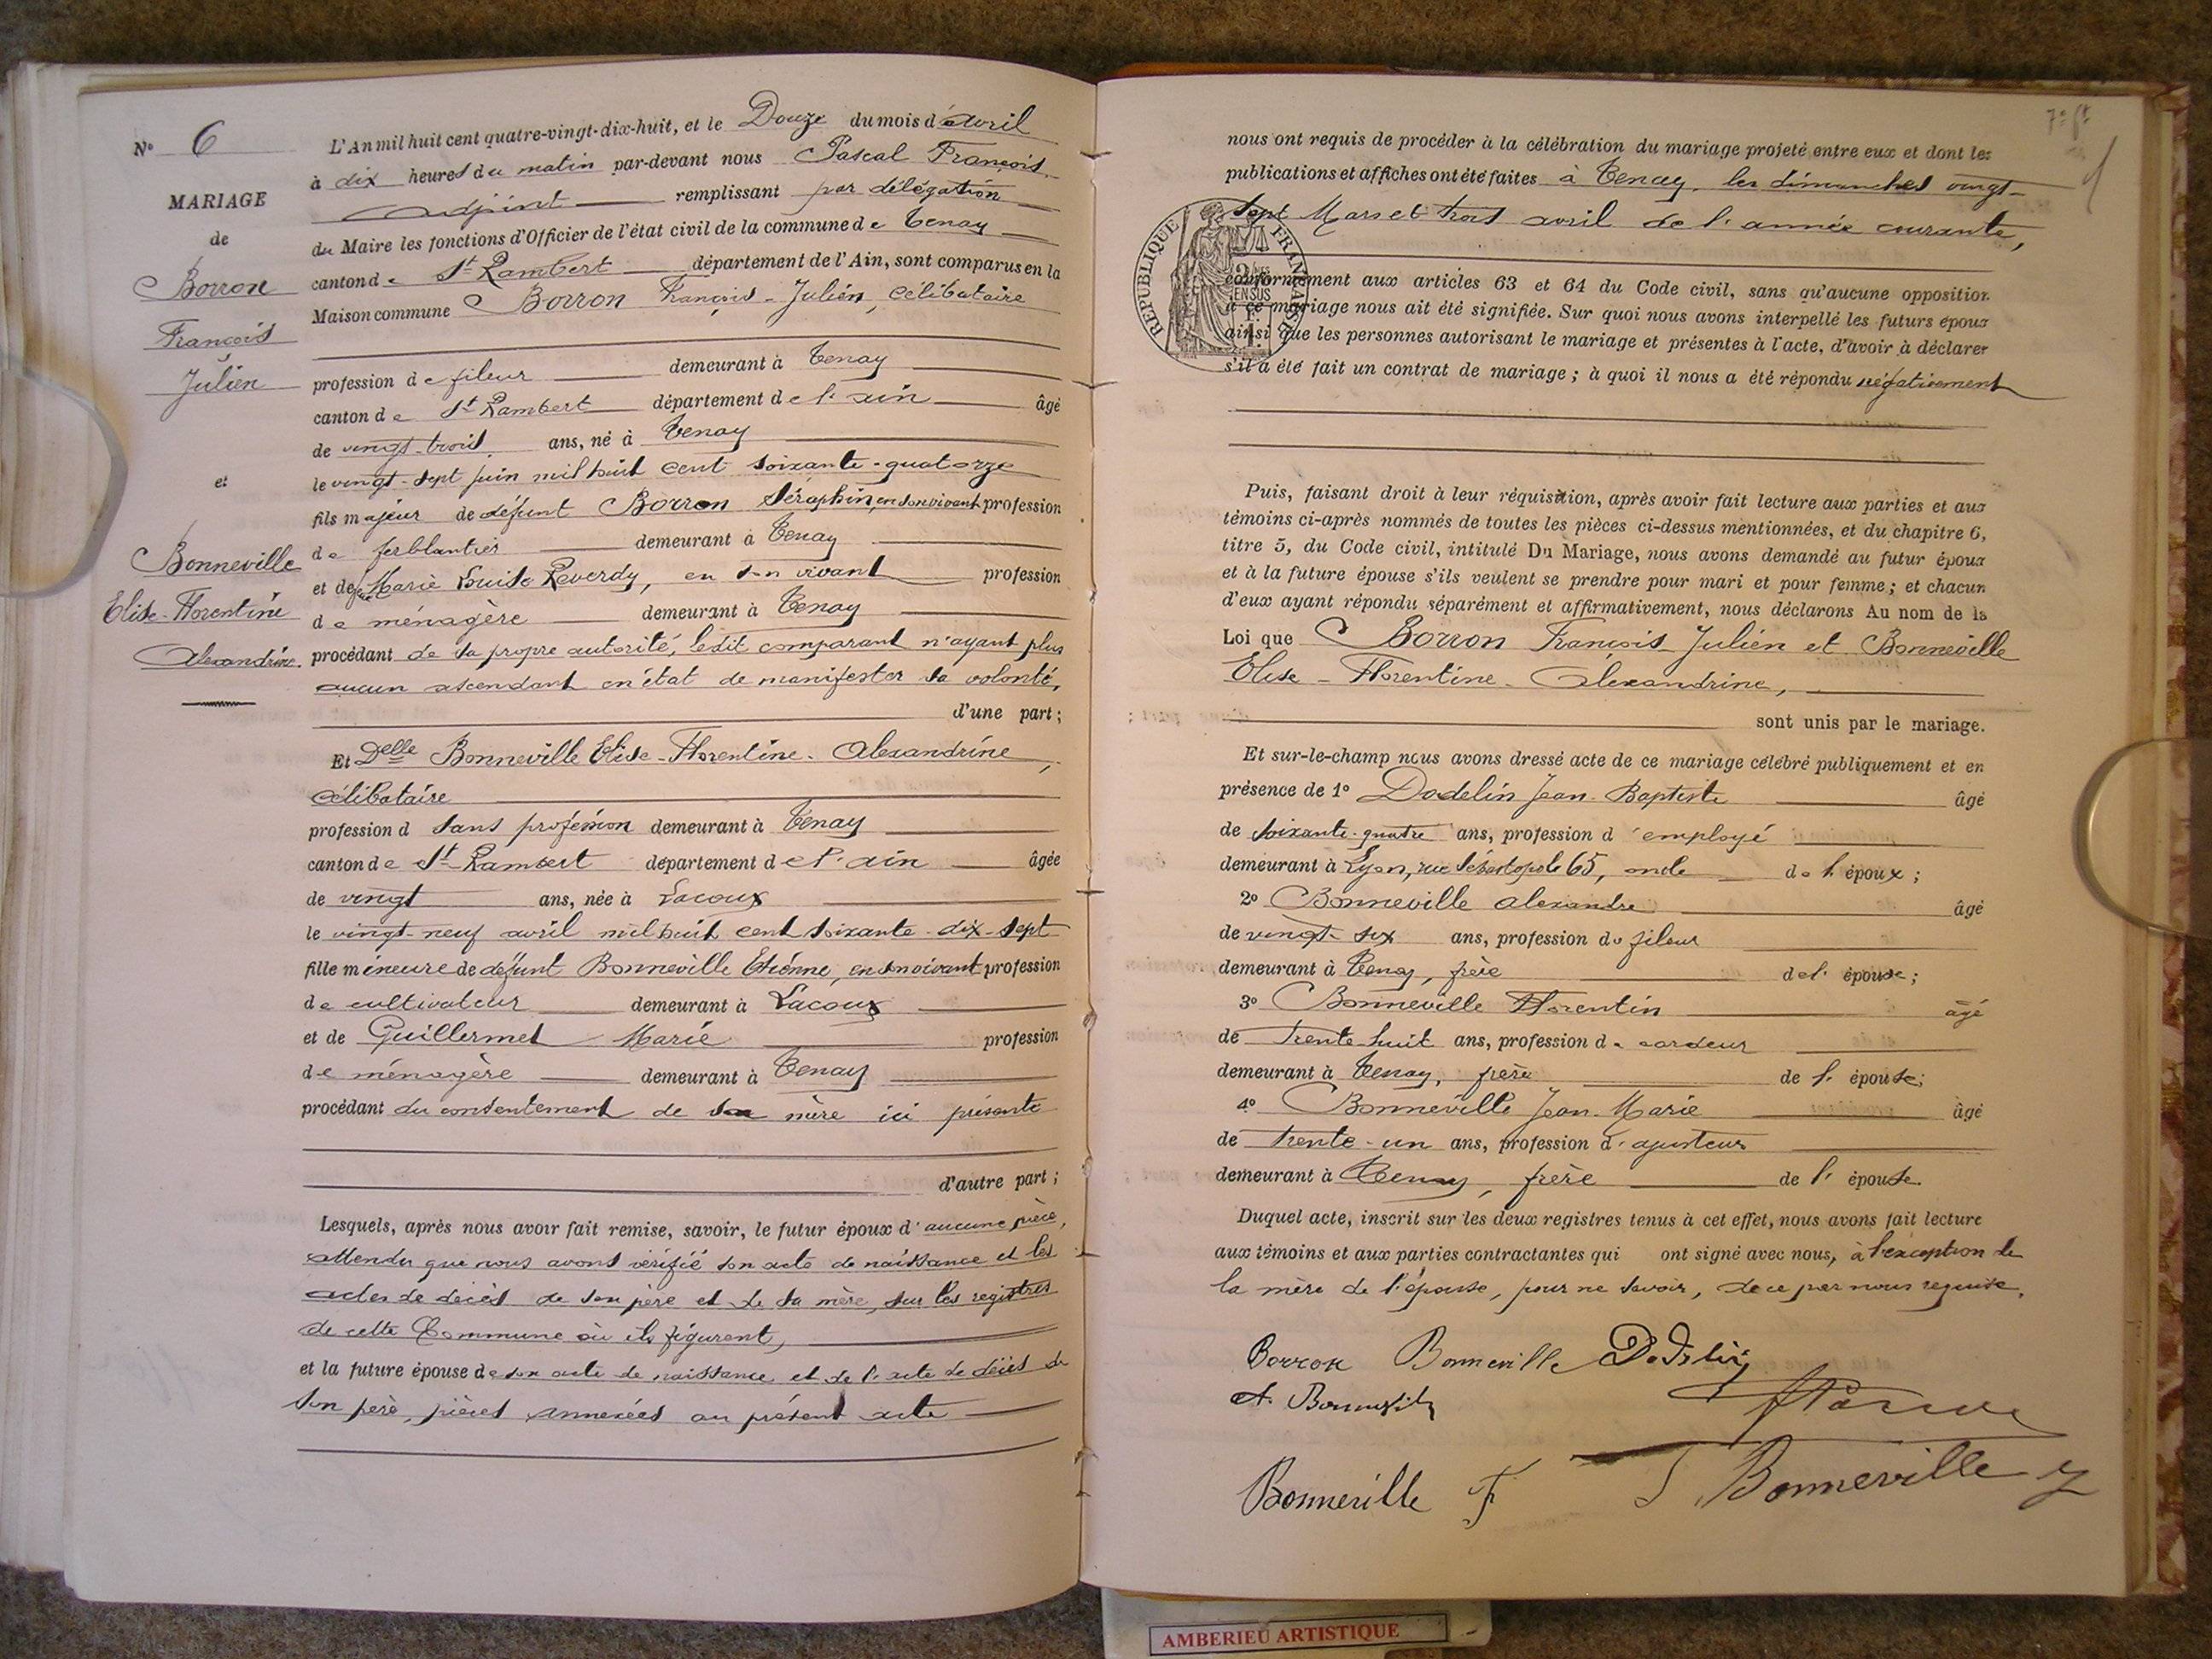 N° 6
MARIAGE
de
Borron
François
Julien
et
Bonneville
Elise-Florentine
Alexandrine.
L'An mil huit cent quatre-vingt-dix-huit, et le Douze du mois d'avril
à dix heures du matin par-devant nous Pascal François
adjoint remplissant par délégation
du Maire les fonctions d'Officier de l'état civil de la commune de Tenay
canton de St Rambert département de l'Ain, sont comparus en la
Maison commune Borron François-Julien, célibataire
profession de fileur demeurant à Tenay
canton de St Rambert département de l'ain âgé
de vingt-trois ans, né à Tenay
le vingt-sept juin mil huit cent soixante-quatorze
fils majeur de défunt Borron Séraphin, en son vivant profession
de ferblantier demeurant à Tenay
et de feue Marie Louise Reverdy, en son vivant profession
de ménagère demeurant à Tenay
procédant de sa propre autorité, ledit comparant n'ayant plus
aucun ascendant en état de manifester sa volonté,
d'une part;
Et Delle Bonneville Elise-Florentine-Alexandrine,
célibataire
profession d sans profession demeurant à Tenay
canton de St Rambert département de l'ain âgée
de vingt ans, née à Lacoux
le vingt-neuf avril mil huit cent soixante-dix-sept
fille mineure de défunt Bonneville Etiénne, en son vivant profession
de cultivateur demeurant à Lacoux
et de Guillermet Marie profession
de ménagère demeurant à Tenay
procédant du consentement de sa mère ici présente
d'autre part;
Lesquels, après nous avoir fait remise, savoir, le futur époux d'aucune pièce,
attendu que nous avons vérifié son acte de naissance et les
actes de décès de son père et de sa mère, sur les registres
de cette Commune où ils figurent,
et la future épouse de son acte de naissance et de l'acte de décès de
son père, pièces annexées au présent acte
7e ft
nous ont requis de procéder à la célébration du mariage projeté entre eux et dont les
publications et affiches ont été faites à Tenay, les dimanches vingt-
sept Mars et trois avril de l'année courante,
REPUBLIQUE FRANÇAISE
conformément aux articles 63 et 64 du Code civil, sans qu'aucune opposition
à ce mariage nous ait été signifiée. Sur quoi nous avons interpellé les futurs époux
ainsi que les personnes autorisant le mariage et présentes à l'acte, d'avoir à déclarer
s'il a été fait un contrat de mariage; à quoi il nous a été répondu négativement
Puis, faisant droit à leur réquisition, après avoir fait lecture aux parties et aux
témoins ci-après nommés de toutes les pièces ci-dessus mentionnées, et du chapitre 6,
titre 5, du Code civil, intitulé Du Mariage, nous avons demandé au futur époux
et à la future épouse s'ils veulent se prendre pour mari et pour femme; et chacun
d'eux ayant répondu séparément et affirmativement, nous déclarons Au nom de la
Loi que Borron François Julien et Bonneville
Elise-Florentine-Alexandrine,
sont unis par le mariage.
Et sur-le-champ nous avons dressé acte de ce mariage célébré publiquement et en
présence de 1° Dodelin Jean-Baptiste âgé
de soixante-quatre ans, profession d'employé
demeurant à Lyon, rue Sébastopole 65, oncle de l'époux;
2° Bonneville alexandre âgé
de vingt-six ans, profession de fileur
demeurant à Tenay, frère de l'épouse;
3° Bonneville Florentin âgé
de trente-huit ans, profession de cardeur
demeurant à Tenay, frère de l'épouse;
4° Bonneville Jean-Marie âgé
de trente-un ans, profession d'ajusteur
demeurant à Tenay, frère de l'épouse.
Duquel acte, inscrit sur les deux registres tenus à cet effet, nous avons fait lecture
aux témoins et aux parties contractantes qui ont signé avec nous, à l'exception de
la mère de l'épouse, pour ne savoir, de ce par nous requise.
Borron Bonneville Dodelin
A. Bonneville
Bonneville F J Bonneville
AMBERIEU ARTISTIQUE